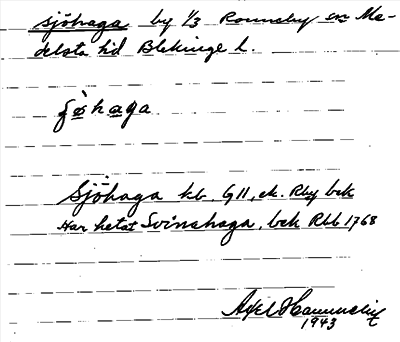 Sjöhaga by 1/3 Ronneby en Me-
delsta hd Blekinge l.
ʃø̀haga
Sjöhaga kb, G11, ek. Rby bek
Har hetat Svinahaga, bek Rbb 1768
Axel
1943